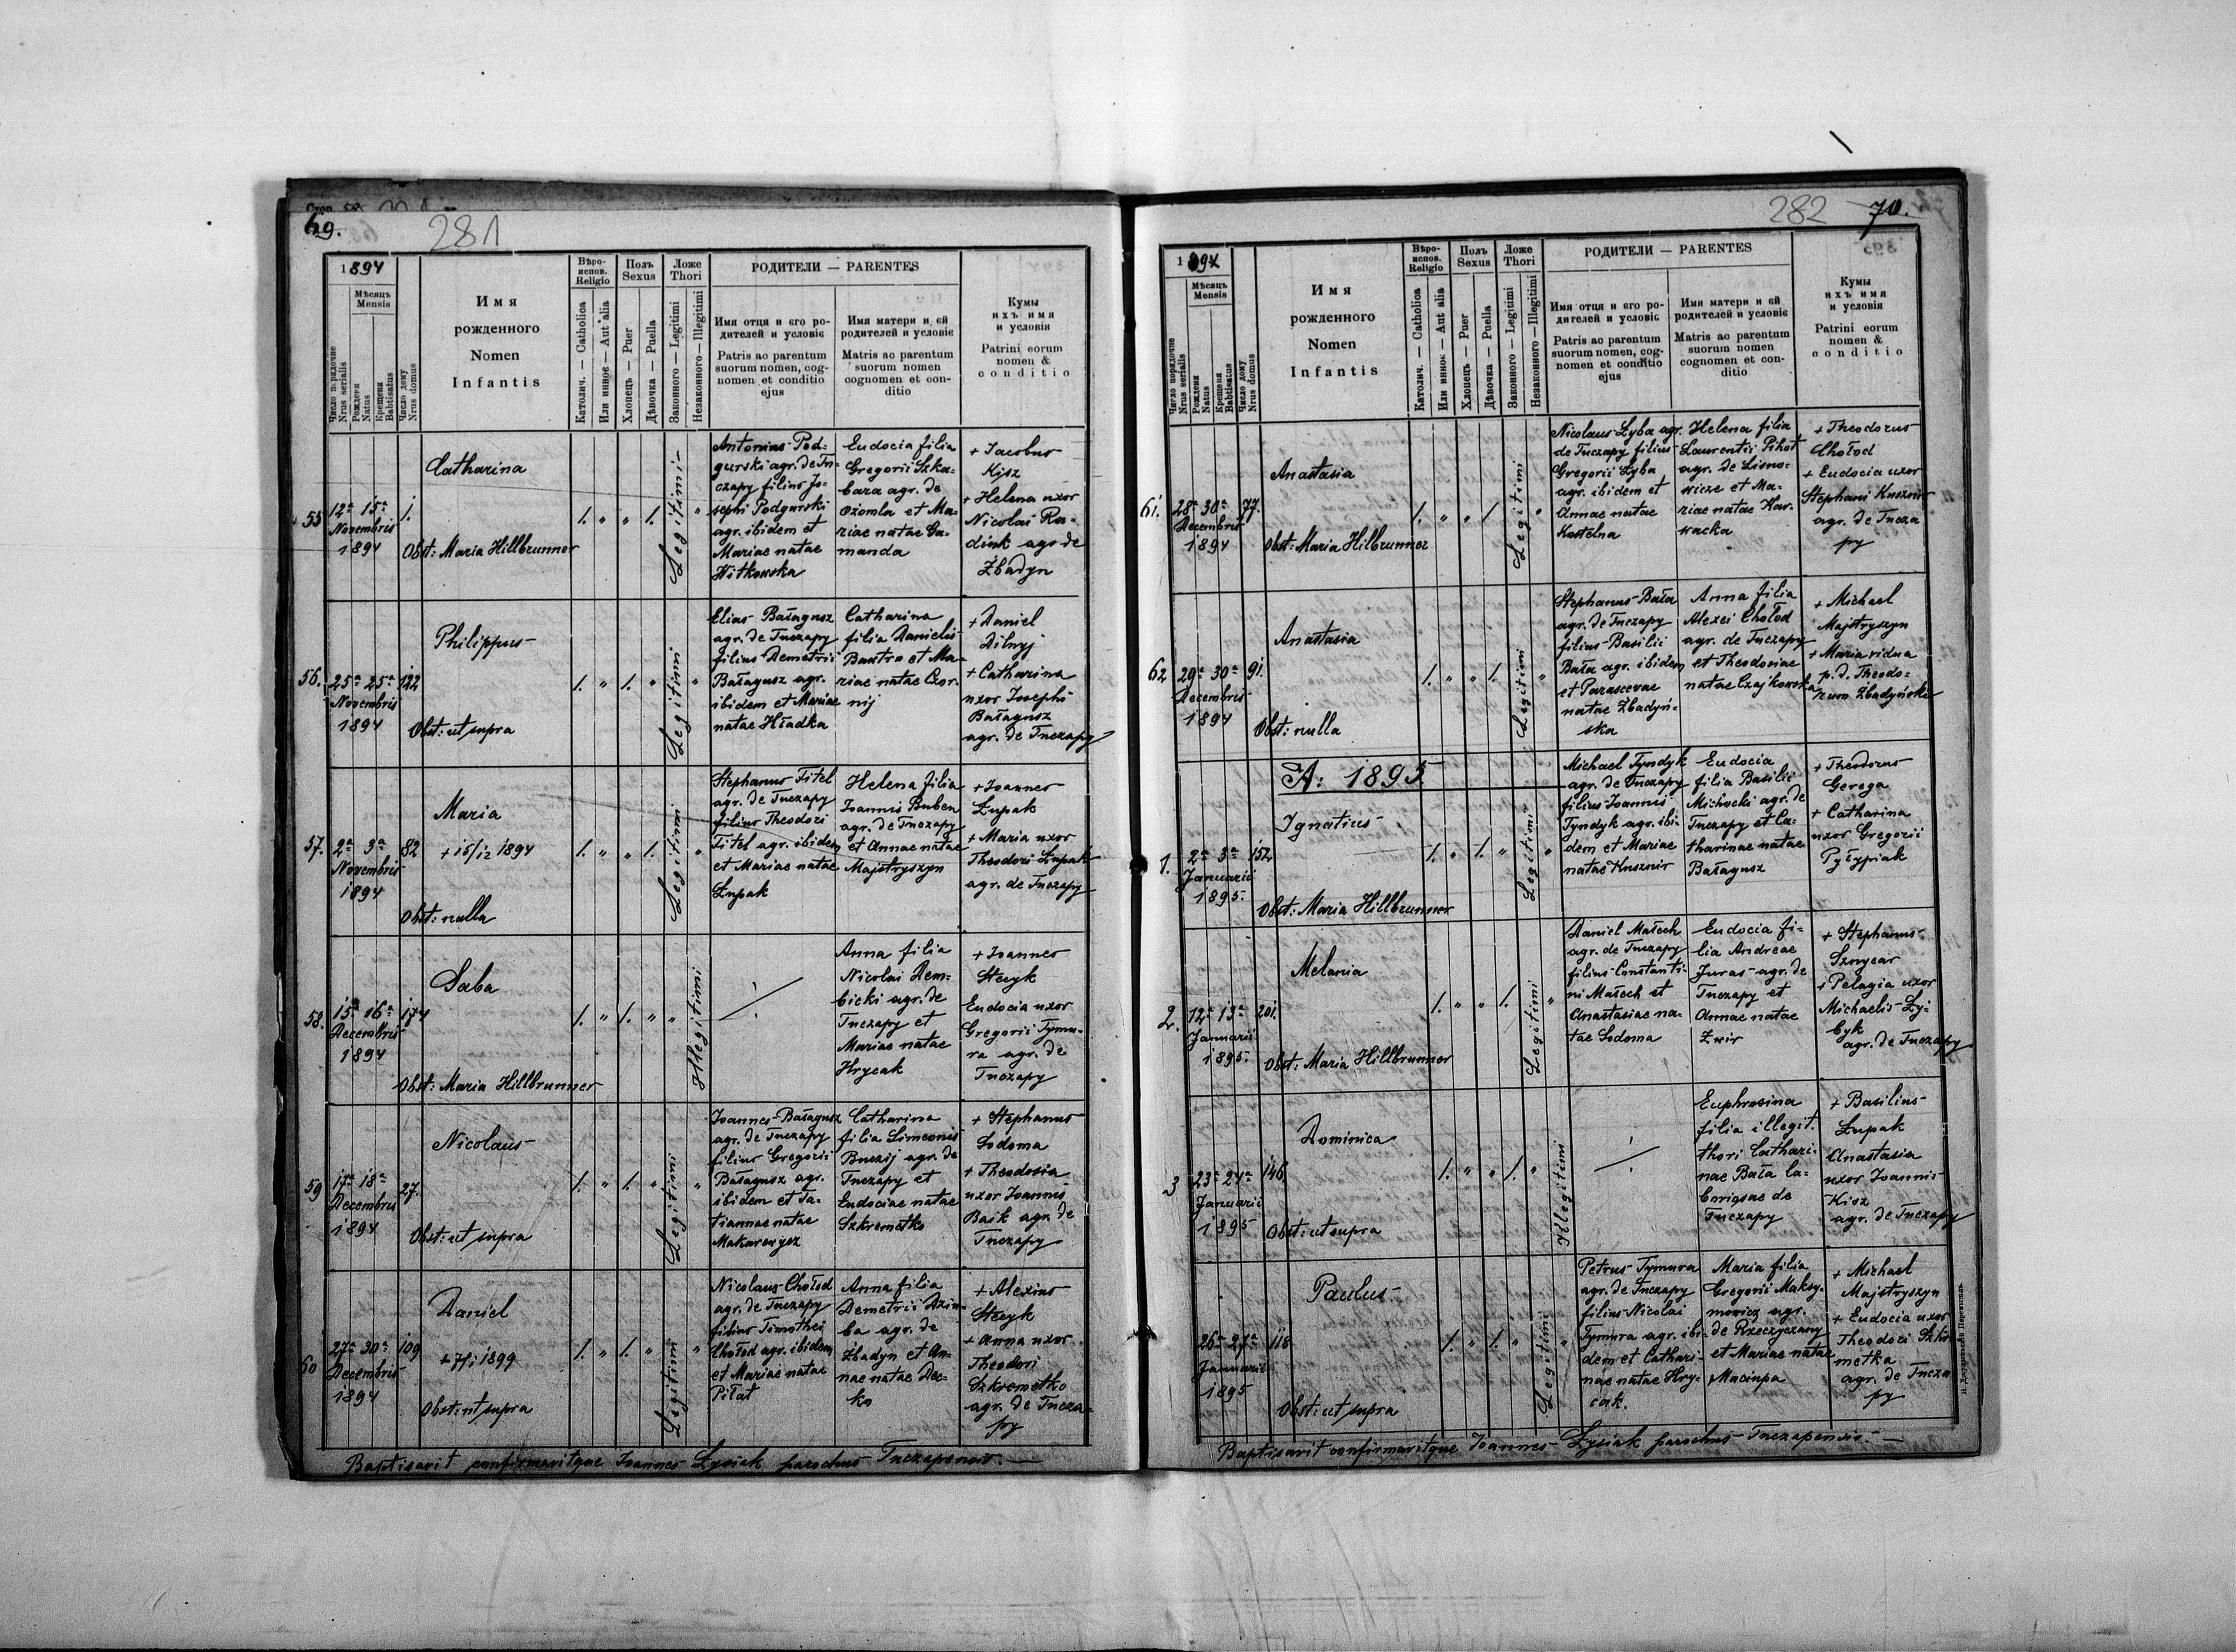 69.
281
1894
Мѣсяцъ
Mensis
Число порядочне
Nrus serialis
Рожденя
Natus
Крещеня
Babtisatus
Число дому
Nrus domus
Имя
рожденного
Nomen
Infantis
Вѣро-
испов.
Religio
Католич. — Catholica
Или инное — Aut alia
Полъ
Sexus
Хлопець — Puer
Дѣвочка — Puella
Ложе
Thori
Законного — Legitimi
Незаконного — Illegitimi
РОДИТЕЛИ — PARENTES
Имя отця и єго ро-
дителей и условіє
Patris ac parentum
suorum nomen, cog-
nomen et conditio
ejus
Имя матери и єй
родителей и условіє
Matris ac parentum
suorum nomen
cognomen et con-
ditio
Кумы
ихъ имя
и условія
Patrini eorum
nomen &
conditio
55
12a 15a
Novembris
1894
1.
Catharina
Obst: Maria Hillbrunner
1. " " 1.
Legitimi
"
Antonius Pod-
gurski agr. de Tu-
czapy filius Jo-
sephi Podgurski
agr. ibidem et
Mariae natae
Witkowska
Eudocia filia
Gregorii Szka-
bara agr. de
Ożomla et Ma-
riae natae Ga-
manda
+ Jacobus
Kisz
+ Helena uxor
Nicolai Ra-
dink agr de
Zbadyn
56.
25a 25a
Novembris
1894
122
Philippus
Obst: ut supra
1. " 1. "
Legitimi
"
Elias Bałagusz
agr. de Tuczapy
filius Demetrii
Bałagusz agr.
ibidem et Mariae
natae Hładka
Catharina
filia Danielis
Bautro et Ma-
riae natae Czor-
nij
+ Daniel
Dilnyj
+ Catharina
uxor Josephi
Bałagusz
agr. de Tuczapy
57.
2a 3a
Novembris
1894
82
Maria
+ 15/12 1894
Obst: nulla
1. " " 1.
Legitimi
"
Stephanus Fitel
agr. de Tuczapy
filius Theodori
Fitel agr. ibidem
et Mariae natae
Łupak
Helena filia
Joannis Buben
agr. de Tuczapy
et Annae natae
Majstryszyn
+ Joannes
Łupak
+ Maria uxor
Theodori Łupak
agr. de Tuczapy
58.
15a 16a
Decembris
1894
174
Saba
Obst: Maria Hillbrunner
1. " 1. " "
Illegitimi
Anna filia
Nicolai Dem-
bicki agr. de
Tuczapy et
Mariae natae
Hrycak
+ Joannes
Stecyk
Eudocia uxor
Gregorii Tymu-
ra agr. de
Tuczapy
59
17a 18a
Decembris
1894
27.
Nicolaus
Obst: ut supra
1. " 1. "
Legitimi
"
Joannes Bałagusz
agr. de Tuczapy
filius Gregorii
Bałagusz agr.
ibidem et Ta-
tiannae natae
Makarewycz
Catharina
filia Simeonis
Buczij agr. de
Tuczapy et
Eudociae natae
Szkremetko
+ Stephanus
Sodoma
+ Theodosia
uxor Joannis
Baik agr. de
Tuczapy
60
27a 30a
Decembris
1894
109
Daniel
+ 7/1 1899
Obst: ut supra
1. " 1. "
Legitimi
"
Nicolaus Chołod
agr. de Tuczapy
filius Timothei
Chołod agr. ibidem
et Mariae natae
Piłat
Anna filia
Demetrii Dziu-
ba agr. de
Zbadyn et An-
nae natae Dec-
ko
+ Alexius
Stecyk
+ Anna uxor
Theodori
Szkrometko
agr. de Tucza-
py
Baptisavit confirmavitque Joannes Łysiak parochus Tuczapensis.
282
70.
1894
Мѣсяцъ
Mensis
Число порядочне
Nrus serialis
Рожденя
Natus
Крещеня
Babtisatus
Число дому
Nrus domus
Имя
рожденного
Nomen
Infantis
Вѣро-
испов.
Religio
Католич. — Catholica
Или инное — Aut alia
Полъ
Sexus
Хлопець — Puer
Дѣвочка — Puella
Ложе
Thori
Законного — Legitimi
Незаконного — Illegitimi
РОДИТЕЛИ — PARENTES
Имя отця и єго ро-
дителей и условіє
Patris ac parentum
suorum nomen, cog-
nomen et conditio
ejus
Имя матери и єй
родителей и условіє
Matris ac parentum
suorum nomen
cognomen et con-
ditio
Кумы
ихъ имя
и условія
Patrini eorum
nomen &
conditio
61.
28a 30a
Decembris
1894
77.
Anastasia
Obst: Maria Hilbrunner
1. " " 1.
Legitimi
"
Nicolaus Łyba agr.
de Tuczapy filius
Gregorii Łyba
agr. ibidem et
Annae natae
Kostelna
Helena filia
Laurentii Pihot
agr. de Lisno-
wicze et Ma-
riae natae Kar-
wacka
+ Theodorus
Chołod
+ Eudocia uxor
Stephani Kusznir
agr. de Tucza
py
62
29a 30a
Decembris
1894
91.
Anastasia
Obst: nulla
1. " " 1.
Legitimi
"
Stephanus Bała
agr. de Tuczapy
filius Basilii
Bała agr. ibidem
et Parascevae
natae Zbadyń-
ska
Anna filia
Alexei Chołod
agr. de Tuczapy
et Theodosiae
natae Czajkowska
+ Michael
Majstryszyn
+ Maria vidua
p. d. Theodo-
rum Zbadyński
A: 1895
1.
2a 3a
Januarii
1895.
152
Ignatius
Obst: Maria Hillbrunner
1. " 1. "
Legitimi
"
Michael Tyndyk
agr. de Tuczapy
filius Joannis
Tyndyk agr. ibi-
dem et Mariae
natae Kusznir
Eudocia
filia Basilii
Michocki agr. de
Tuczapy et Ca-
tharinae natae
Bałagusz
+ Theodorus
Gerega
+ Catharina
uxor Gregorii
Pyłypiak
2.
12a 13a
Januarii
1895.
201.
Melania
Obst: Maria Hillbrunner
1. " " 1.
Legitimi
"
Daniel Małech
agr. de Tuczapy
filius Constanti-
ni Małech et
Anastasiae na-
tae Sodoma
Eudocia fi-
lia Andreae
Juras agr. de
Tuczapy et
Annae natae
Zwir
+ Stephanus
Sznycar
+ Pelagia uxor
Michaelis Ły-
byk
agr. de Tuczapy
3
23a 24a
Januarii
1895
146
Dominica
Obst: ut supra
1. " " 1. "
Illegitimi
Euphrosina
filia illegit.
thori Cathari-
nae Bała la-
de
Tuczapy
+ Basilius
Łupak
Anastasia
uxor Joannis
Kisz
agr. de Tuczapy
26a 27a
Januarii
1895
118
Paulus
Obst: ut supra
1. " 1. "
Legitimi
"
Petrus Tymura
agr. de Tuczapy
filius Nicolai
Tymura agr. ibi-
dem et Cathari-
nae natae Hry-
cak.
Maria filia
Gregorii Maksy-
mowicz agr.
de Rzeczyczany
et Mariae natae
Maciupa
+ Michael
Majstryszyn
+ Eudocia uxor
Theodori Szkre
metka
agr. de Tucza
py
Baptisavit confirmavitque Joannes Łysiak parochus Tuczapensis.